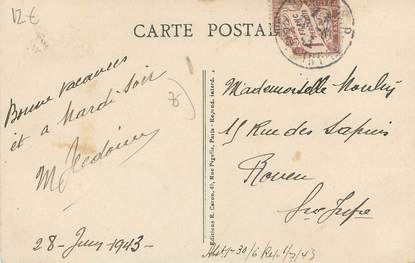 12 €
CARTE POSTALE
Bonne vacances
et a Mardi soir
M
28 - Juin 1943 -
Editions R. Caron, 67, Rue Pigalle, Paris - Reprod. interd.
Mademoiselle
15 Rue des Sapins
Rouen
Sne Infre
30/6 1/7/43